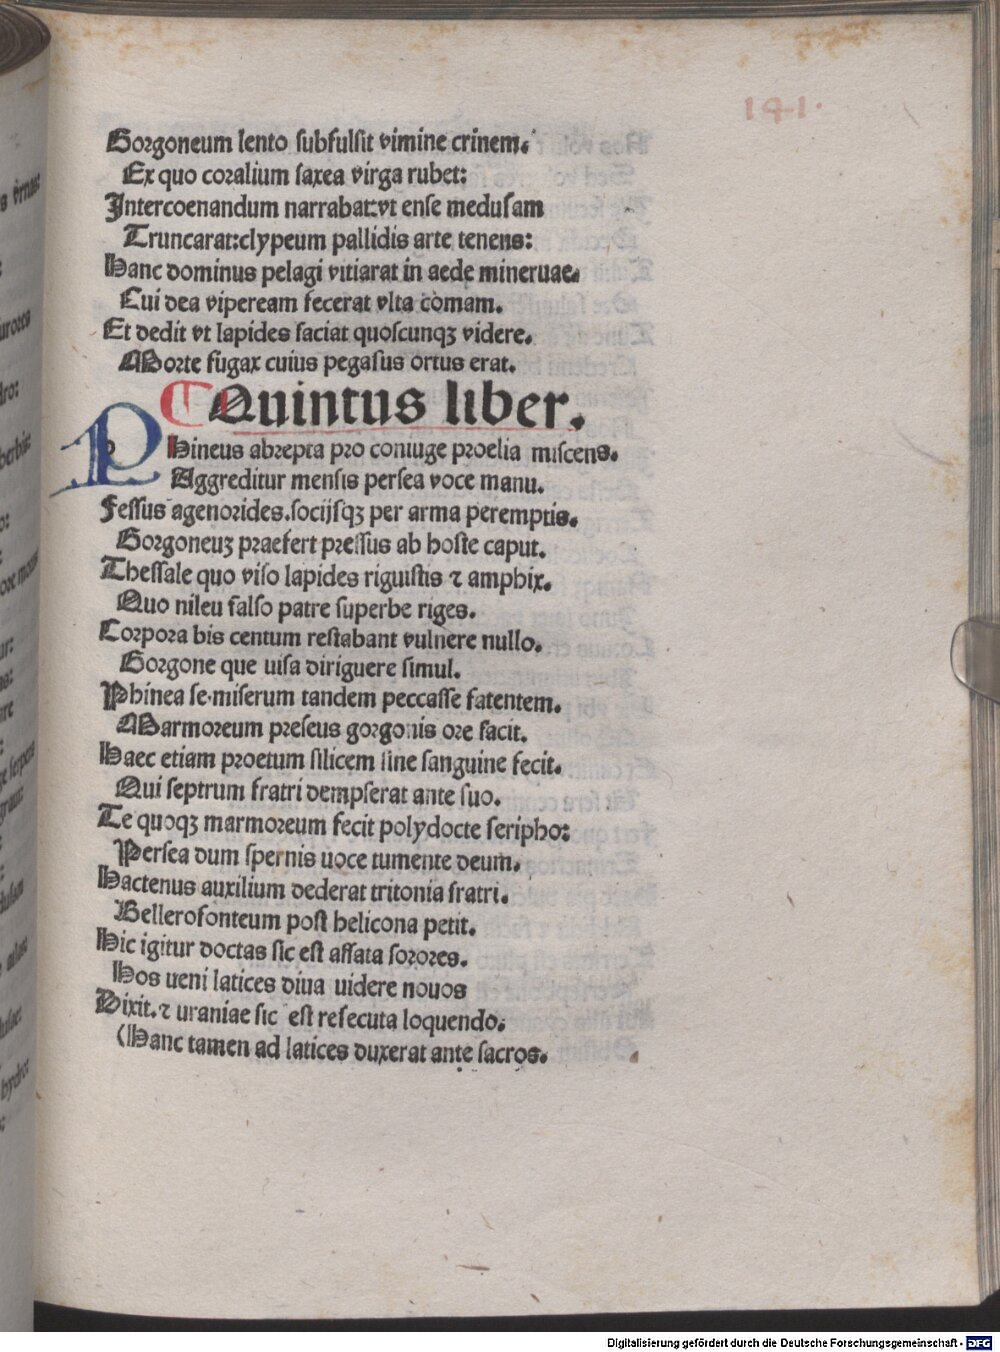 141.
Gorgoneum lento subfulsit vimine crinem.
Ex quo coralium saxea virga rubet:
Intercoenandum narrabat:vt ense medusam
Truncarat:clypeum pallidis arte tenens:
Hanc dominus pelagi vitiarat in aede mineruae.
Cui dea viperea̅m fecerat vlta comam.
Et dedit vt lapides faciat quoscunqꝫ videre.
Morte fugax cuius pegasus ortus erat.
Quintus liber.
PHineus abrepta pro coniuge proelia miscens.
Aggreditur mensis persea voce manu.
Fessus agenorides.socijsqꝫ per arma peremptis.
Gorgoneuꝫ praefert pressus ab hoste caput.
Thessale quo viso lapides riguistis ⁊ amphix.
Quo nileu falso patre superbe riges.
Corpora bis centum restabant vulnere nullo.
Gorgone que uisa diriguere simul.
Phinea se.miserum tandem peccasse fatentem.
Marmoreum preseus gorgonis ore facit.
Haec etiam proetum silicem sine sanguine fecit.
Qui septrum fratri dempserat ante suo.
Te quoqꝫ marmoreum fecit polydocte seripho:
Persea dum spernis uoce tumente deum.
Hactenus auxilium dederat tritonia fratri.
Bellerofonteum post helicona petit.
Hic igitur doctas sic est affata sorores.
Hos ueni latices diua uidere nouos
Dixit.⁊ uraniae sic est resecuta loquendo:
(Hanc tamen ad latices duxerat ante sacros.
Digitalisierung gefördert durch die Deutsche Forschungsgemeinschaft - DFG